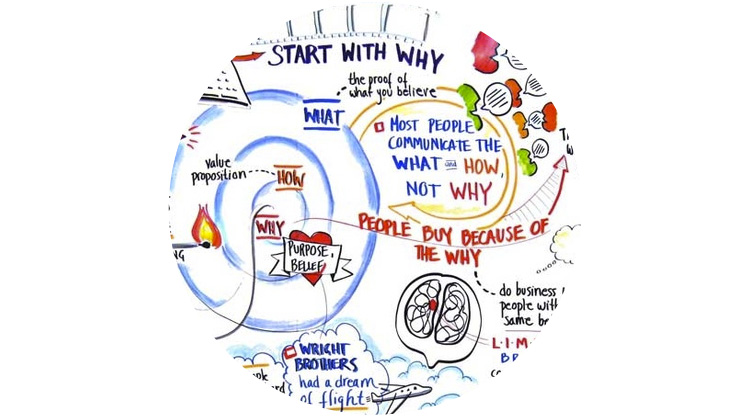 START WITH WHY
the proof of
what you believe
WHAT
MOST PEOPLE
COMMUNICATE THE
WHAT and HOW,
NOT WHY
value
proposition
HOW
WHY
PURPOSE,
BELIEF
PEOPLE BUY BECAUSE OF
THE WHY
do business
people with
same
WRIGHT
BROTHERS
had a dream
of flight